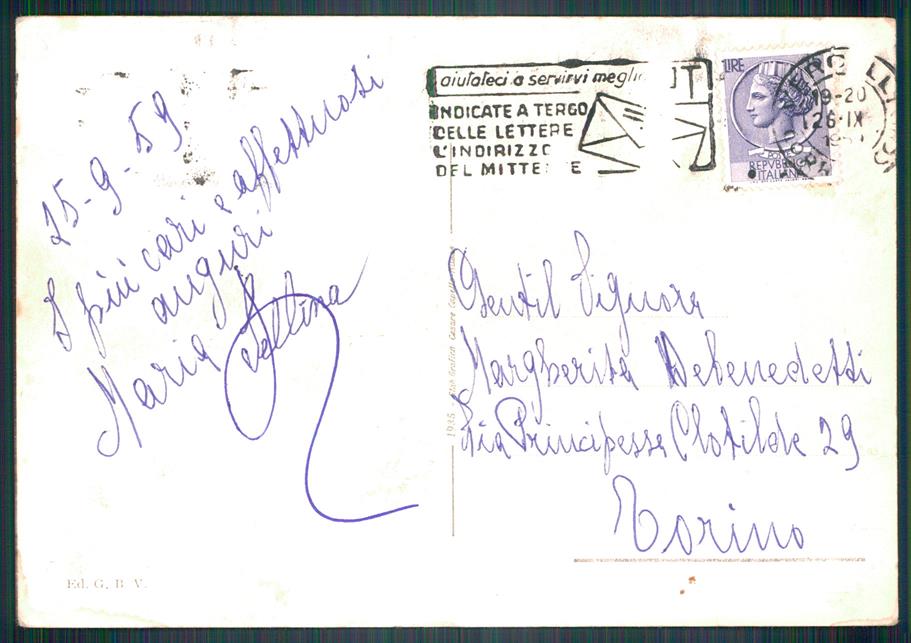 25-9-59
I più cari e affettuosi
auguri
Maria
aiutateci a servirvi meglio
INDICATE A TERGO
DELLE LETTERE
L'INDIRIZZO
DEL MITTE E
LIRE
POSTE
REPVBBLICA
ITALIANA
19-20
26-IX
Gentil Signora
Margherita Debenedetti
Via Principessa Clotilde 29
Torino
Ed. G. B. V.